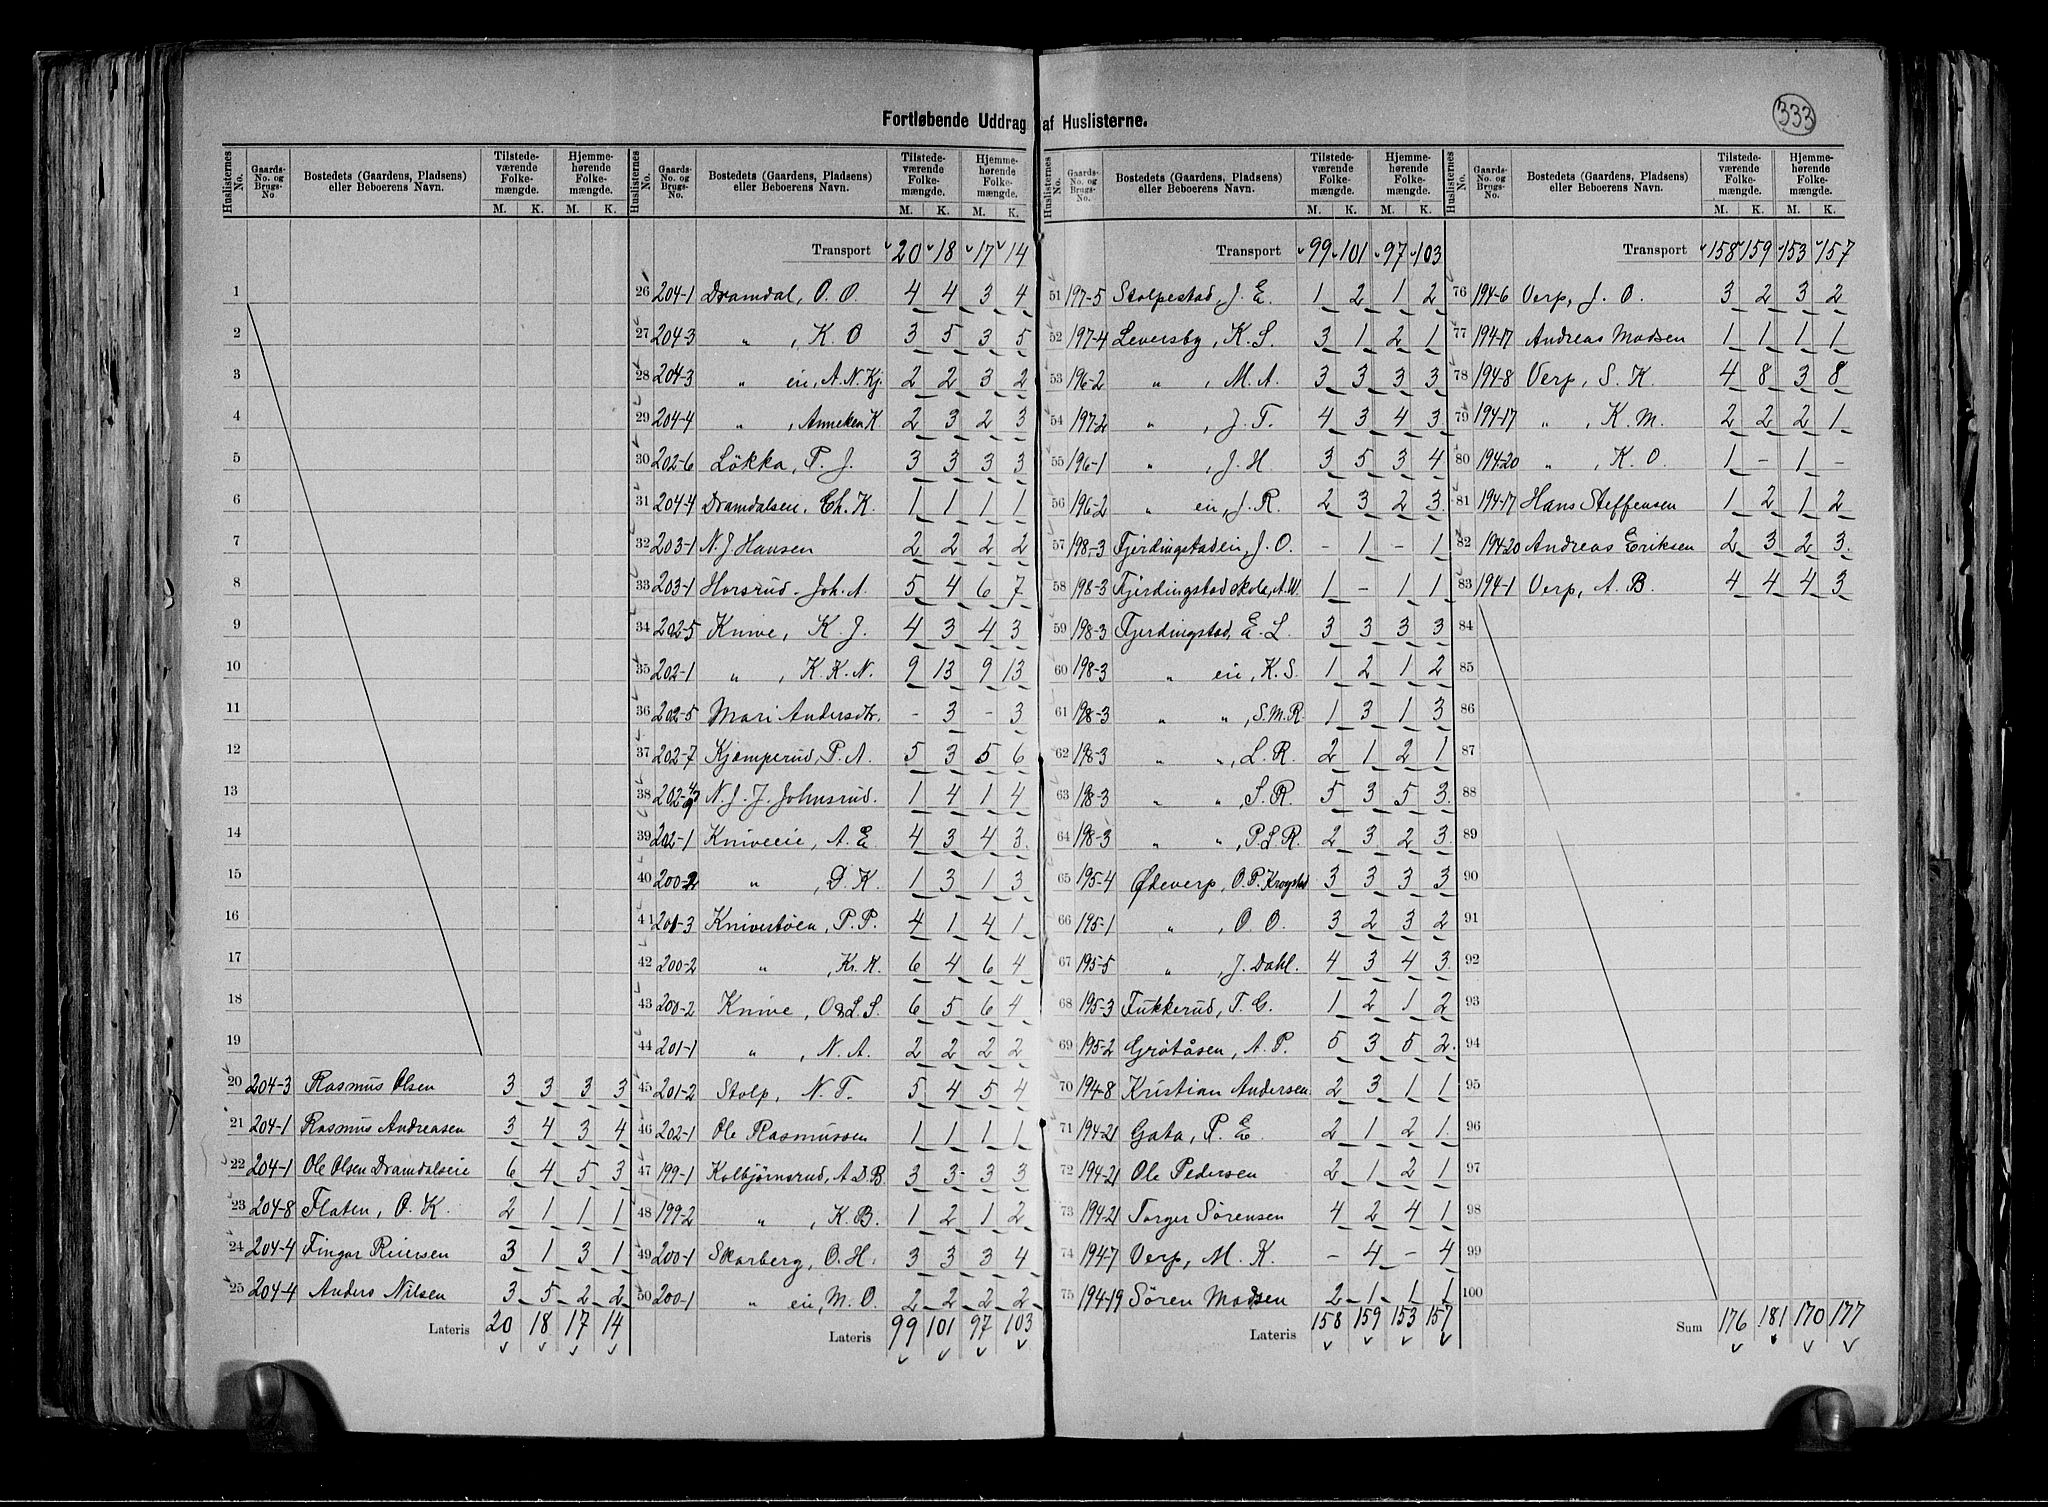 333
Fortløbende Uddrag af Huslisterne.
Huslisternes No. | Gaards-No. og Brugs-No. | Bostedets (Gaardens, Pladsens) eller Beboerens Navn. | Tilstede-værende Folke-mængde. M. K. | Hjemme-hørende Folke-mængde. M. K.
1
2
3
4
5
6
7
8
9
10
11
12
13
14
15
16
17
18
19
20 204-3 Rasmus Olsen 3 3 3 3
21 204-1 Rasmus Andreasen 3 4 3 4
22 204-1 Ole Olsen Dramdalseie 6 4 5 3
23 204-8 Flaten, O. K. 2 1 1 1
24 204-4 Fingar Reiersen 3 1 3 1
25 204-4 Anders Nilsen 3 5 2 2
Lateris 20 18 17 14
Huslisternes No. | Gaards-No. og Brugs-No. | Bostedets (Gaardens, Pladsens) eller Beboerens Navn. | Tilstede-værende Folke-mængde. M. K. | Hjemme-hørende Folke-mængde. M. K.
Transport 20 18 17 14
26 204-1 Dramdal, O. O. 4 4 3 4
27 204-3 " , K. O 3 5 3 5
28 204-3 " eie, A. N. Kj. 2 2 3 2
29 204-4 " , Anneken K. 2 3 2 3
30 202-6 Løkka, P. J. 3 3 3 3
31 204-4 Dramdalseie, Ch. K. 1 1 1 1
32 203-1 N. J. Hansen 2 2 2 2
33 203-1 Horsrud - Joh. A. 5 4 6 7
34 202-5 Knive, K. J. 4 3 4 3
35 202-1 " , K. K. N. 9 13 9 13
36 202-5 Mari Andersdtr. - 3 - 3
37 202-7 Kjæmperud, P. A. 5 3 5 6
38 202- N. J. J. Johnsrud. 1 4 1 4
39 202-1 Kniveeie, A. E. 4 3 4 3.
40 200-2 " , D. K. 1 3 1 3
41 201-3 Knivestøen, P. P. 4 1 4 1
42 200-2 " , Kr. K. 6 4 6 4
43 200-2 Knive, O & L. S. 6 5 6 4
44 201-1 " , N. A. 2 2 2 2
45 201-2 Stolp, N. T. 5 4 5 4
46 202-1 Ole Rasmussen 1 1 1 1
47 199-1 Kolbjørnsrud, A. D. B. 3 3 3 3
48 199-2 " , K. B. 1 2 1 2
49 200-1 Skarberg, O. H. 3 3 3 4
50 200-1 " eie, M. O. 2 2 2 2
Lateris 99 101 97 103
Huslisternes No. | Gaards-No. og Brugs-No. | Bostedets (Gaardens, Pladsens) eller Beboerens Navn. | Tilstede-værende Folke-mængde. M. K. | Hjemme-hørende Folke-mængde. M. K.
Transport 99 101 97 103
51 197-5 Stolpestad, J. E. 1 2 1 2
52 197-4 Leversby, K. S. 3 1 2 1
53 196-2 " , M. A. 3 3 3 3
54 197-2 " , J. T. 4 3 4 3
55 196-1 " , J. H 3 5 3 4
56 196-2 " eie, J. R. 2 3 2 3.
57 198-3 Fjerdingstadeie, J. O. - 1 - 1
58 198-3 Fjerdingstad skole, A. W. 1 - 1 1
59 198-3 Fjerdingstad, E. L. 3 3 3 3
60 198-3 " eie, K. S. 1 2 1 2
61 198-3 " " , S. M. R. 1 3 1 3
62 198-3 " " , L. R. 2 1 2 1
63 198-3 " " , S. R. 5 3 5 3.
64 198-3 " " , P. L. R. 2 3 2 3.
65 195-4 Ødeverp, O. P. Krogstad 3 3 3 3
66 195-1 " , O O. 3 2 3 2
67 195-5 " , J. Dahl. 4 3 4 3.
68 195-3 Fukkerud, T. G. 1 2 1 2
69 195-2 Grøtåsen, A. P. 5 3 5 2.
70 194-8 Kristian Andersen. 2 3 1 1
71 194-21 Gata, P. E. 2 1 2 1.
72 194-21 Ole Pedersen 2 1 2 1
73 194-21 Torger Sørensen 4 2 4 1
74 194-7 Verp, M. K. - 4 - 4
75 194-19 Søren Madsen 2 1 1 1
Lateris 158 159 153 157
Huslisternes No. | Gaards-No. og Brugs-No. | Bostedets (Gaardens, Pladsens) eller Beboerens Navn. | Tilstede-værende Folke-mængde. M. K. | Hjemme-hørende Folke-mængde. M. K.
Transport 158 159 153 157
76 194-6 Verp, J. O. 3 2 3 2
77 194-17 Andreas Madsen 1 1 1 1
78 194-8 Verp, S. K. 4 8 3 8
79 194-17 " , K. M. 2 2 2 1
80 194-20 " , K. O. 1 - 1 -
81 194-17 Hans Steffensen 1 2 1 2
82 194-20 Andreas Eriksen 2 3 2 3.
83 194-1 Verp, A. B. 4 4 4 3
84
85
86
87
88
89
90
91
92
93
94
95
96
97
98
99
100
Sum 176 181 170 177